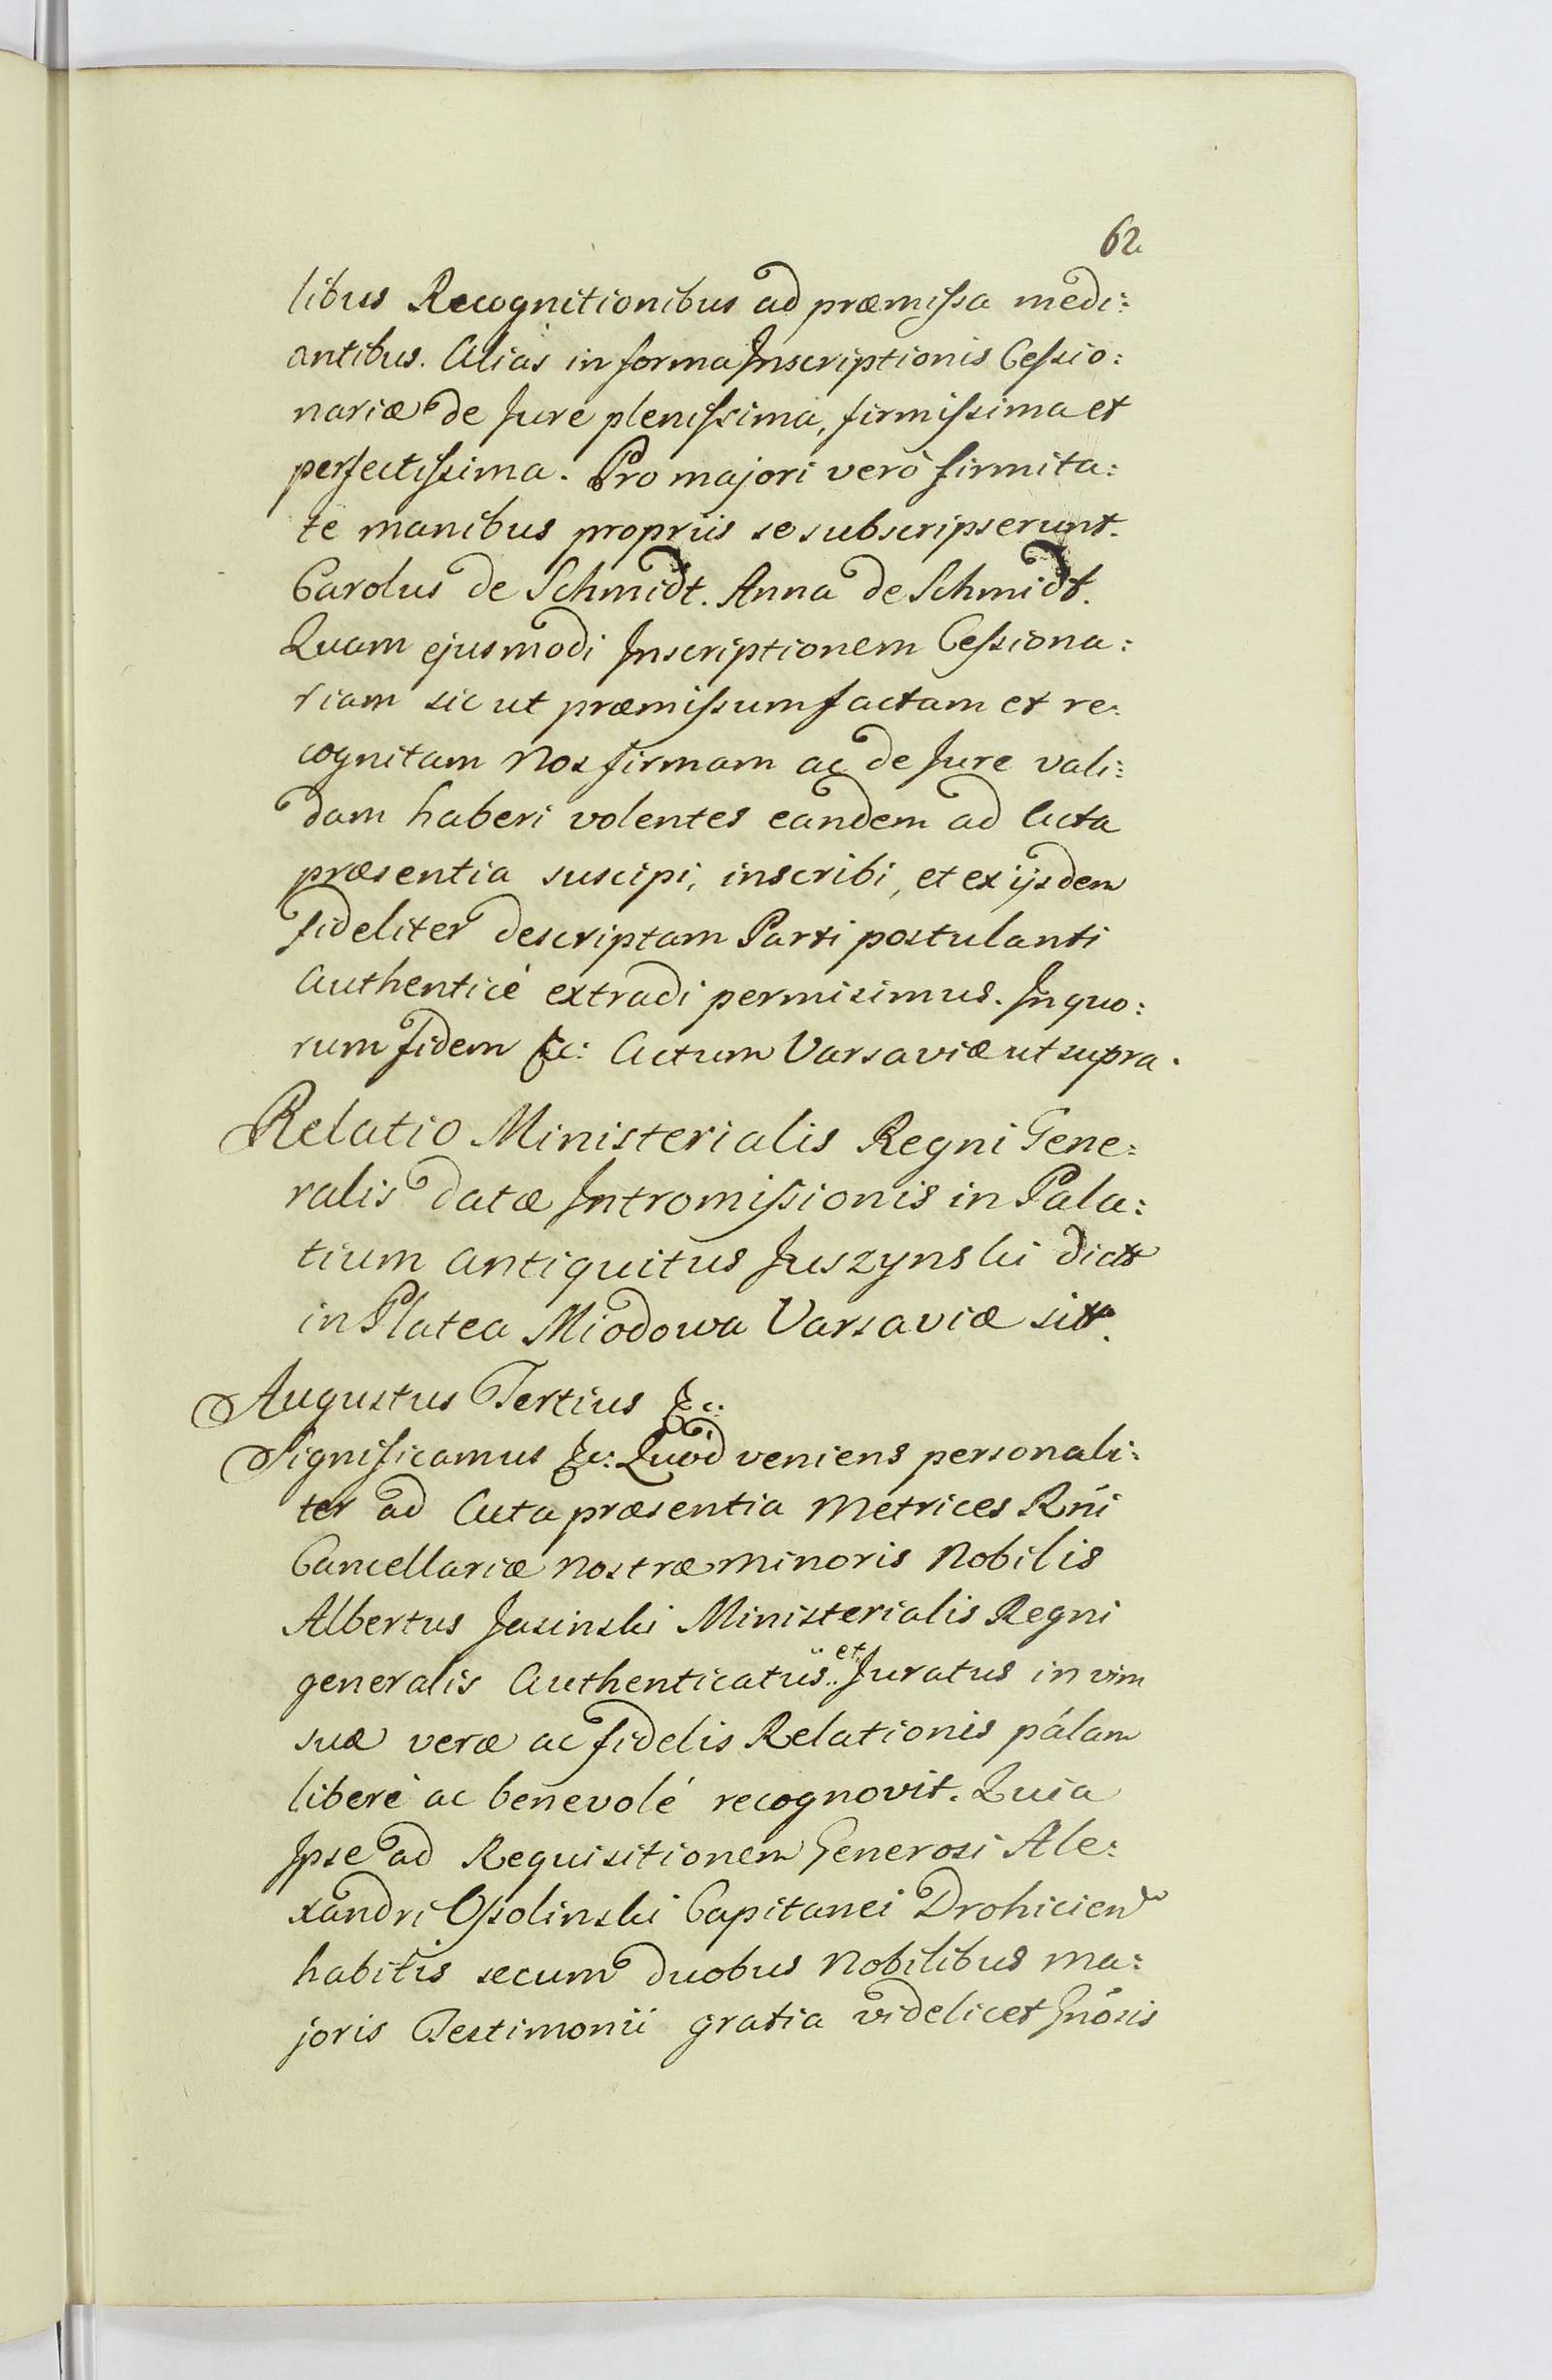 62
libus Recognitionibus ad præmissa medi:
antibus. Aliàs in forma Inscriptionis Cessio:
nariæ de Jure plenissima, firmissima et
perfectissima. Pro majori verò firmita:
te manibus propriis se subscripserunt.
Carolus de Schmidt. Anna de Schmidt.
Quam ejusmodi Inscriptionem Cessiona:
riam sic ut præmissum factam et re:
cognitam Nos firmam ac de Jure vali:
dam haberi volentes eandem ad Acta
præsentia suscipi, inscribi, et ex ijsdem
fideliter descriptam Parti postulanti
Authenticè extradi permisimus. In quo:
rum fidem &c: Actum Varsaviæ ut supra.
Relatio Ministerialis Regni Gene:
ralis datæ Intromissionis in Pala:
tium antiquitus Juszynski dict
in Platea Miodowa Varsaviæ sit.
Augustus Tertius &c:
Significamus &c: Quòd veniens personali:
ter ad Acta præsentia Metrices Rńi
Cancellariæ Nostræ Minoris Nobilis
Albertus Jasinski Ministerialis Regni
generalis Authenticatus et Juratus in vim
suæ veræ ac fidelis Relationis pálam
liberè ac benevolé recognovit. Quia
Ipse ad Requisitionem Generosi Ale:
xandri Ossolinski Capitanei Drohicien
habitis secum duobus Nobilibus ma:
joris Testimonii gratia videlicet Gnósis